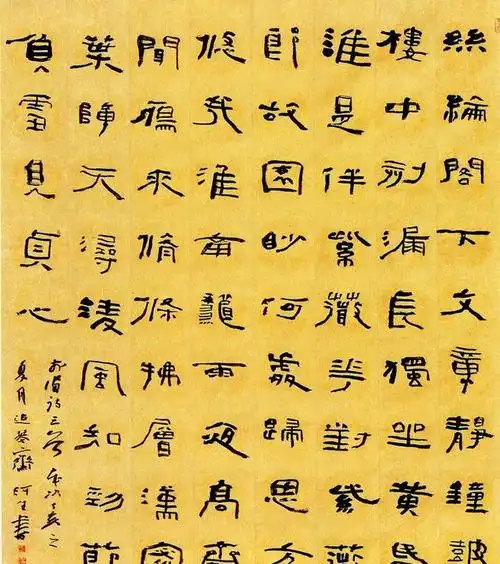 絲綸閣下文章靜鐘鼓
樓中刻漏長獨坐黃昏
誰是伴紫薇花對紫薇
郎故園眇何處歸思方
悠哉淮南龝雨夜高齋
聞鴈來脩條拂層漢密
葉障天潯凌風知勁節
負雪見貞心
詩三首
夏月